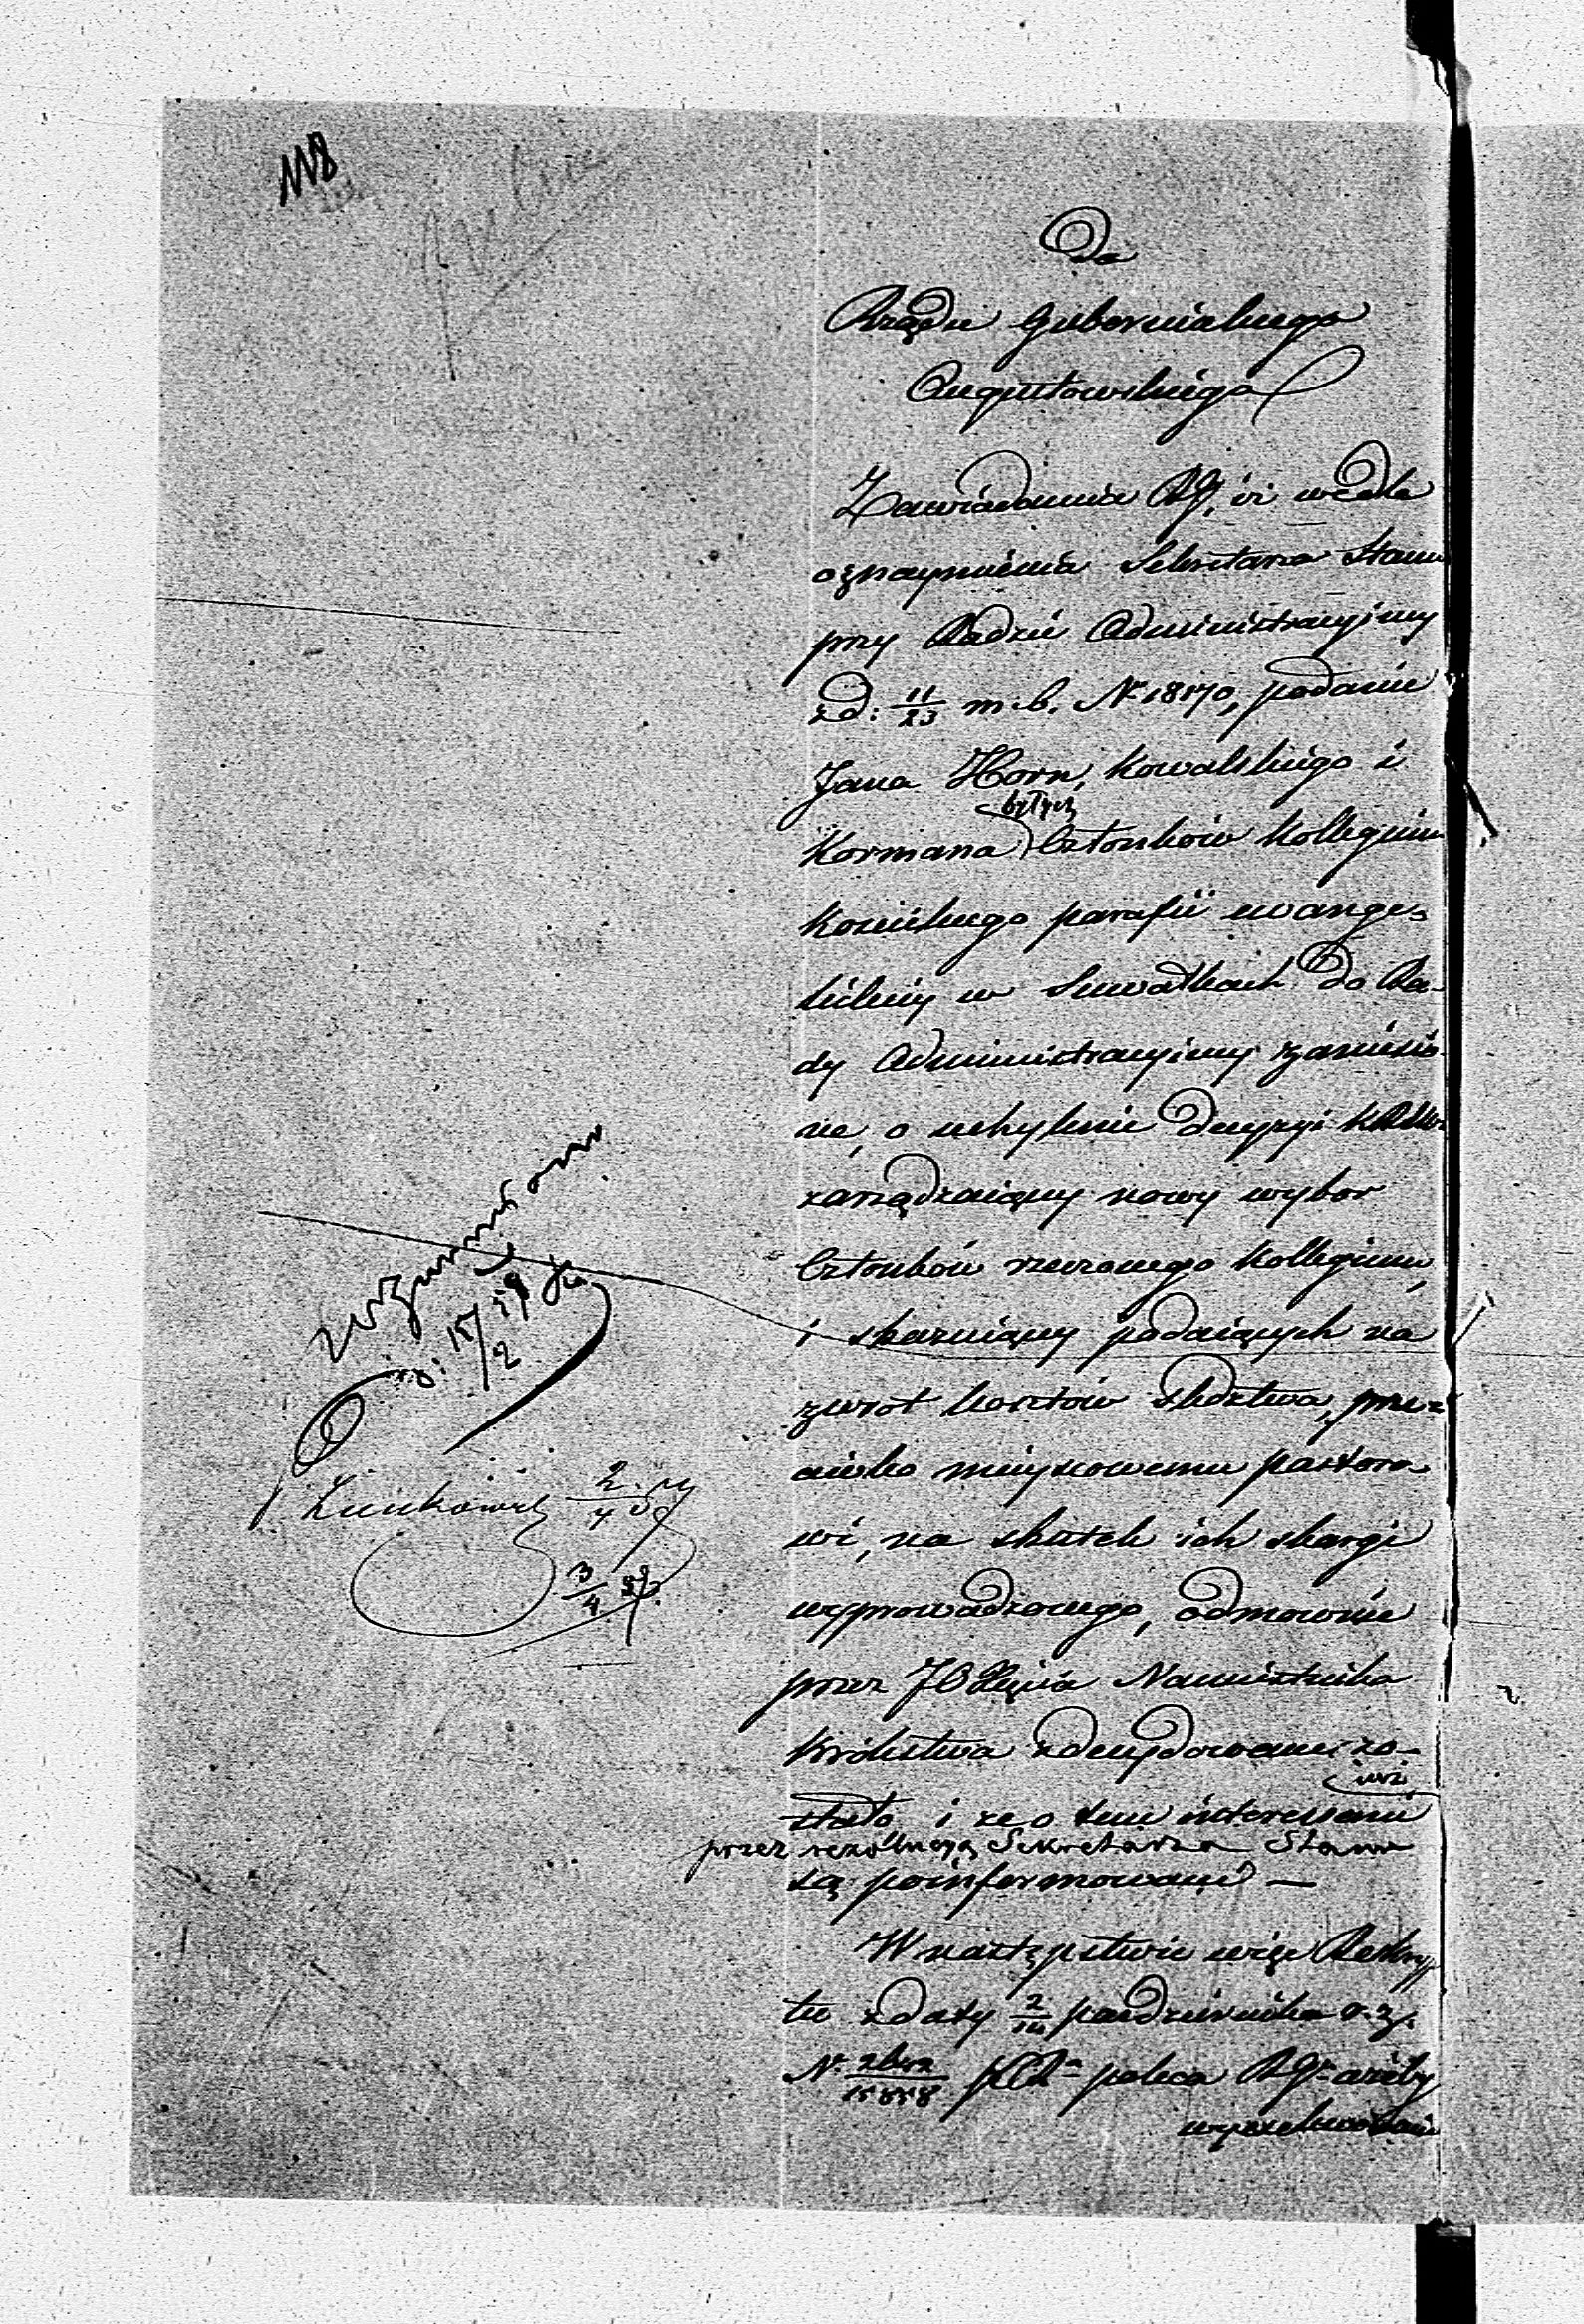 118
Do
Rządu Gubernialnego
Augustowskiego
Zawiadamia RG, iż wedle
oznaymienia Sekretarza Stanu
przy Radzie Administracyjnej
z d: 11/23 m. b. Nr 18170, podanie
Jana Horn, Kowalskiego i
byłych
Kormana Członków Kollegium
Kościelnego parafii ewange-
lickiej w Suwałkach do Ra-
dy Administracyjnej zaniesio-
ne, o uchylenie decyzyi KRSW
zarządzaiącey nowy wybor
Członków rzeczonego Kollegium,
i skazuiącey podaiących na
zwrot kosztów śledztwa, prze-
ciwko mieyscowemu pastoro-
wi, na skutek ich skargi
wyprowadzonego, odmownie
przez JO Xięcia Namiestnika
Królestwa zdecydowane zo-
stało i że o tem interessenci
iuż
przez rezolucyą Sekretarza Stanu
są poinformowani —
W następstwie więc Reskryp-
tu z daty 2/14 października r. z.
Nr 15858 poleca RG ażeby
wyexekwowanie
15/2 59
2/4 59
3/4 59